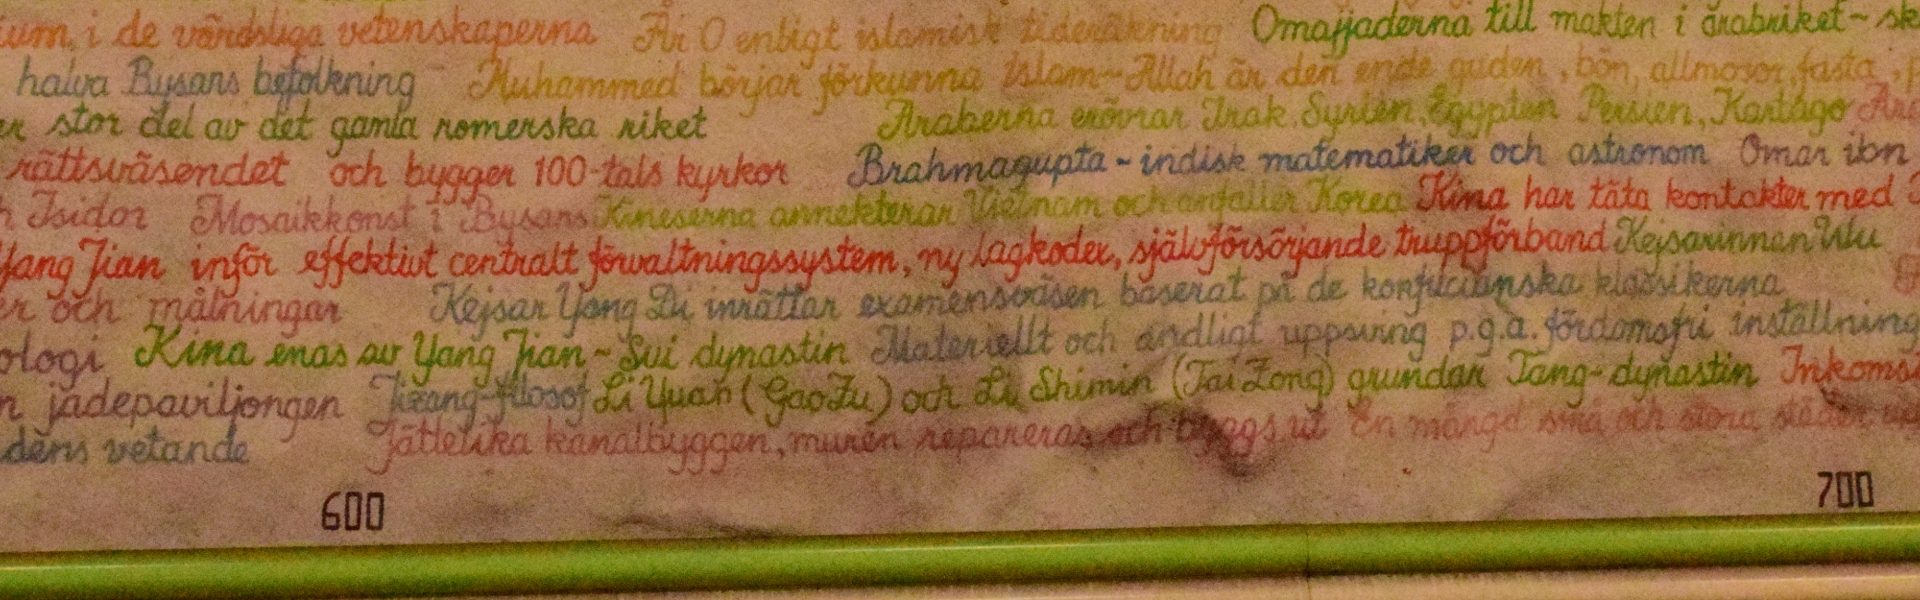 i de värdsliga vetenskaperna År 0 enligt islamisk tideräkning Omajjaderna till makten i arabriket ~
halva Bysans befolkning Muhammed börjar förkunna Islam ~ Allah är den ende guden, bön, allmosor, fasta,
stor del av det gamla romerska riket Araberna erövrar Irak, Syrien, Egypten Persien, Kartago
rättsväsendet och bygger 100-tals kyrkor Brahmagupta ~ indisk matematiker och astronom Omar ibn
Isidor Mosaikkonst i Bysans Kineserna annekterar Vietnam och anfaller Korea Kina har täta kontakter med
Yang Jian inför effektivt centralt förvaltningssystem, ny lagkoder, självförsörjande truppförband Kejsarinnan Wu
och målningar Kejsar Yang Di inrättar examensväsen baserat på de konfucianska klassikerna
Kina enas av Yang Jian ~ Sui dynastin Materiellt och andligt uppsving p.g.a. fördomsfri inställning
jadepaviljongen Jizang-filosof Li Yuan (Gao Zu) och Li Shimin (Tai Zong) grundar Tang-dynastin
vetande Jättelika kanalbyggen, muren repareras och byggs ut En mängd små och stora städer
600 700